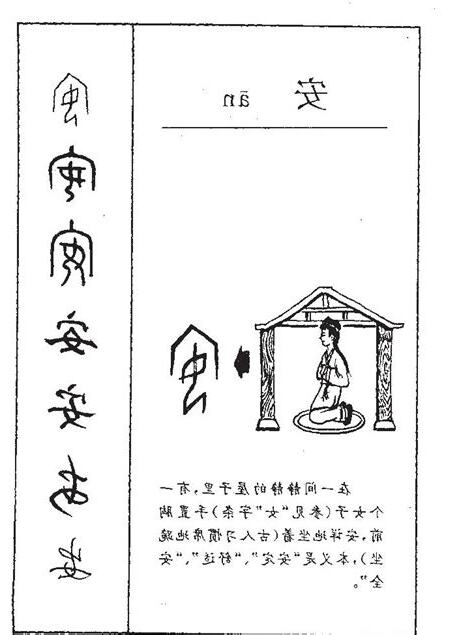 安 ān
在一间静静的屋子里,有一
个女子(参见“女”字条)手置胸
前,安详地坐着(古人习惯席地跪
坐),本义是“安定”、“舒适”、“安
全”。